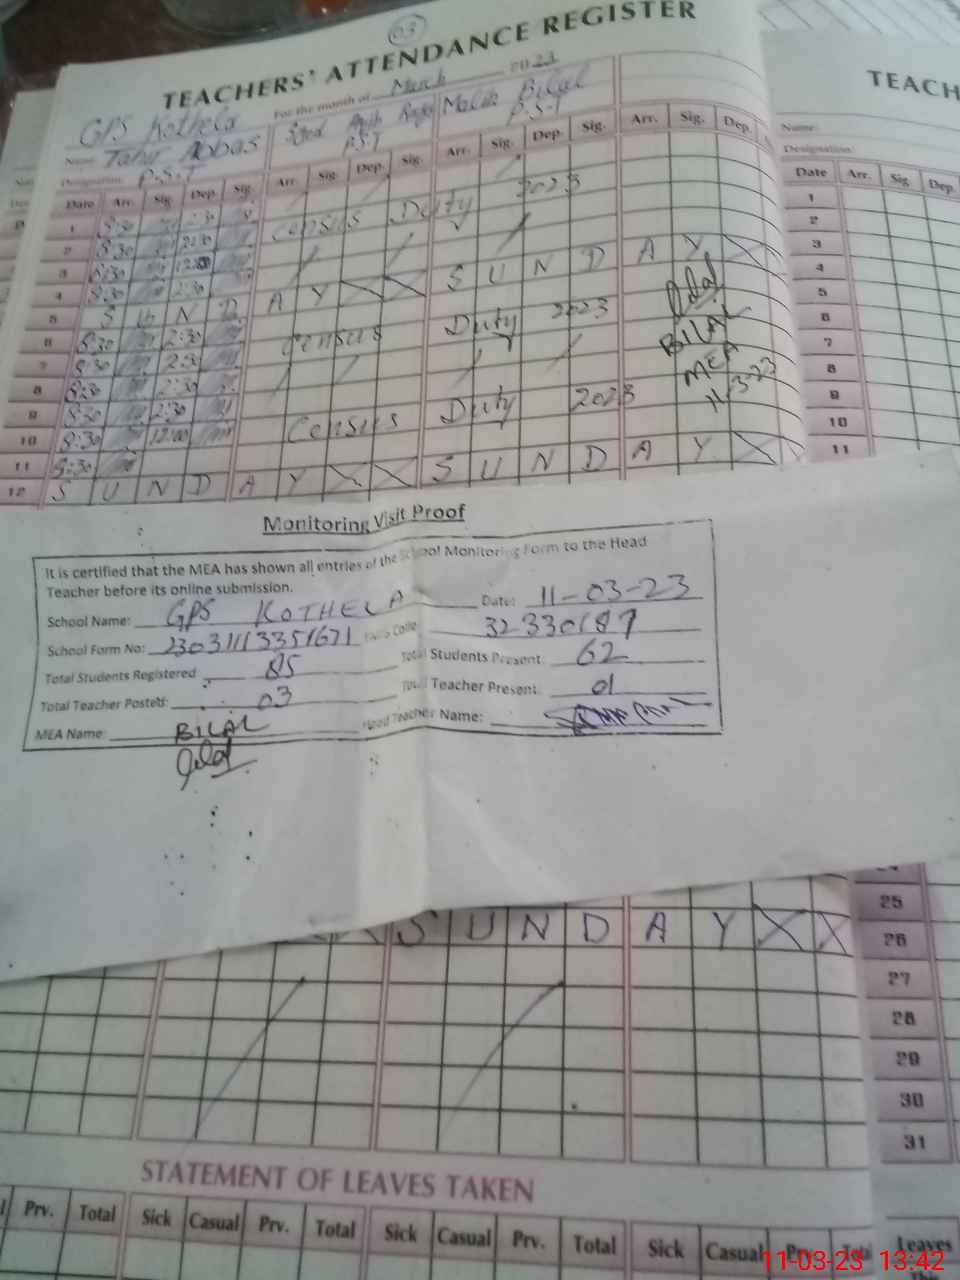 03
TEACHERS' ATTENDANCE REGISTER
For the month of March 2023
GPS Kothela
Name: Tahir Abbas
Malik Bilal
P.S.T
P.S.T
Designation: P.S.T
Date Arr. Sig. Dep. Sig. Arr. Sig. Dep. Sig. Arr. Sig. Dep. Sig. Arr. Sig. Dep.
1 8:30 2:30
2 8:30 2:30 Census Duty 2023
3 8:30 12:00
4 8:30 2:30
5 S U N D A Y X X S U N D A Y X
6 8:30 2:30 Census Duty 2023
7 8:30 2:30
8 8:30 2:30
9 8:30 2:30
10 8:30 12:00 Census Duty 2023
11 8:30
12 S U N D A Y X X S U N D A Y X
Bilal
BILAL
MEA
11-3-23
TEACH
Name:
Designation:
Date Arr. Sig. Dep.
1
2
3
4
5
6
7
8
9
10
11
Monitoring Visit Proof
It is certified that the MEA has shown all entries of the School Monitoring Form to the Head
Teacher before its online submission.
School Name: GPS KOTHELA Date: 11-03-23
School Form No: 23031113351671 Code: 32330187
Total Students Registered 85 Total Students Present: 62
Total Teacher Posted: 03 Total Teacher Present: 01
MEA Name: BILAL Head Teacher Name:
25
S U N D A Y X X 26
27
28
29
30
31
STATEMENT OF LEAVES TAKEN
Prv. Total Sick Casual Prv. Total Sick Casual Prv. Total Sick Casual Prv. Total Leaves
11-03-23 13:42